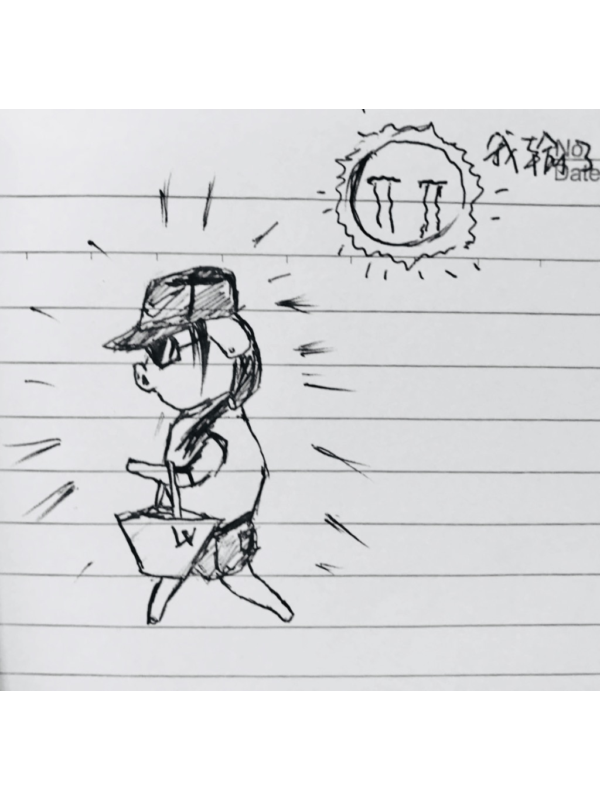 我输了
No.
Date
LV